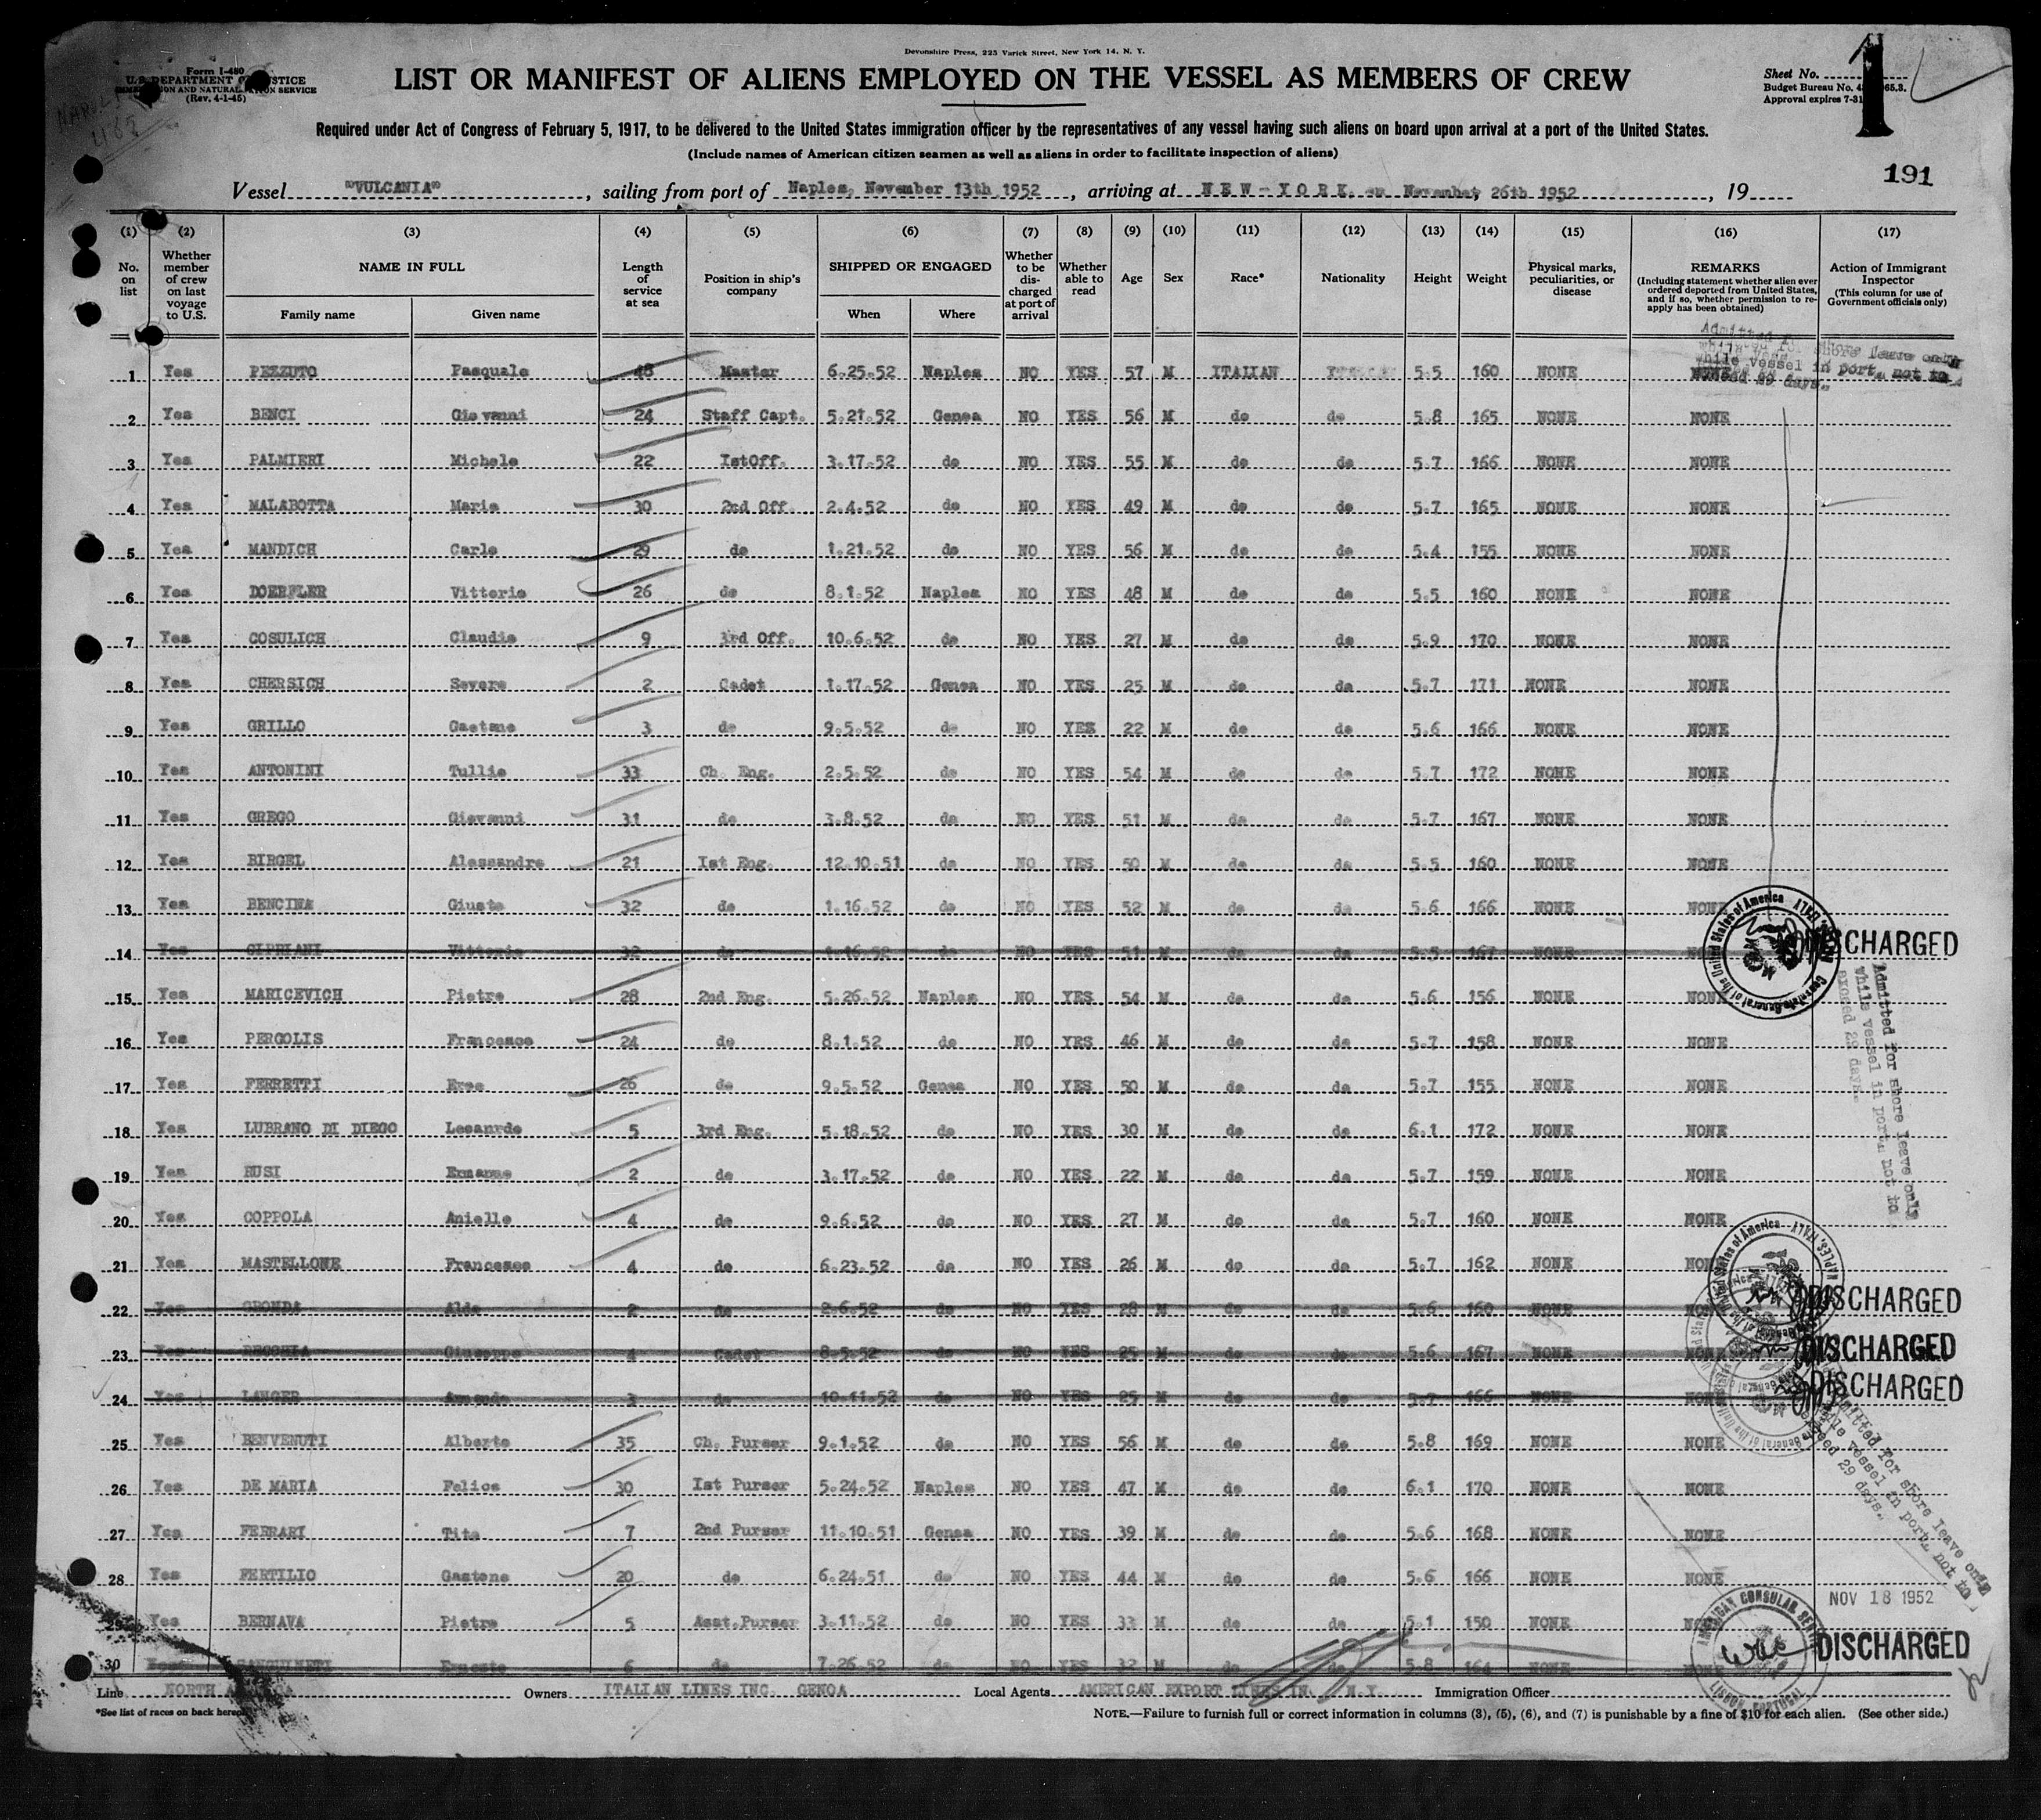 Devonshire Press, 225 Varick Street, New York 14, N. Y.
Form I-480
U. S. DEPARTMENT OF JUSTICE
IMMIGRATION AND NATURALIZATION SERVICE
(Rev. 4-1-45)
LIST OR MANIFEST OF ALIENS EMPLOYED ON THE VESSEL AS MEMBERS OF CREW
Sheet No. 1
Budget Bureau No. 43 65.3.
Approval expires 7-31
Required under Act of Congress of February 5, 1917, to be delivered to the United States immigration officer by the representatives of any vessel having such aliens on board upon arrival at a port of the United States.
(Include names of American citizen seamen as well as aliens in order to facilitate inspection of aliens)
191
Vessel "VULCANIA", sailing from port of Naples, November 13th 1952, arriving at NEW-YORK. on November 26th 1952, 19
(1) (2) (3) (4) (5) (6) (7) (8) (9) (10) (11) (12) (13) (14) (15) (16) (17)
No. on list Whether member of crew on last voyage to U.S. NAME IN FULL Family name Given name Length of service at sea Position in ship's company SHIPPED OR ENGAGED When Where Whether to be discharged at port of arrival Whether able to read Age Sex Race* Nationality Height Weight Physical marks, peculiarities, or disease REMARKS (Including statement whether alien ever ordered deported from United States, and if so, whether permission to reapply has been obtained) Action of Immigrant Inspector (This column for use of Government officials only)
Admitted for shore leave only
while vessel in port, not to
exceed 29 days.
1 Yes PEZZUTO Pasquale 48 Master 6.25.52 Naples NO YES 57 M ITALIAN 5.5 160 NONE
2 Yes BENCI Giovanni 24 Staff Capt. 5.21.52 Genoa NO YES 56 M do do 5.8 165 NONE NONE
3 Yes PALMIERI Michele 22 IstOff. 3.17.52 do NO YES 55 M do do 5.7 166 NONE NONE
4 Yes MALABOTTA Mario 30 2nd Off. 2.4.52 do NO YES 49 M do do 5.7 165 NONE NONE
5 Yes MANDICH Carlo 29 do 1.21.52 do NO YES 56 M do do 5.4 155 NONE NONE
6 Yes DOERFLER Vittorio 26 do 8.1.52 Naples NO YES 48 M do do 5.5 160 NONE NONE
7 Yes COSULICH Claudio 9 3rd Off. 10.6.52 do NO YES 27 M do do 5.9 170 NONE NONE
8 Yes CHERSICH Severo 2 Cadet 1.17.52 Genoa NO YES 25 M do do 5.7 171 NONE NONE
9 Yes GRILLO Gaetano 3 do 9.5.52 do NO YES 22 M do do 5.6 166 NONE NONE
10 Yes ANTONINI Tullio 33 Ch. Eng. 2.5.52 do NO YES 54 M do do 5.7 172 NONE NONE
11 Yes GREGO Giovanni 31 do 3.8.52 do NO YES 51 M do do 5.7 167 NONE NONE
12 Yes BIRGEL Alessandro 21 Ist Eng. 12.10.51 do NO YES 50 M do do 5.5 160 NONE NONE
13 Yes BENCINA Giusto 32 do 1.16.52 do NO YES 52 M do do 5.6 166 NONE NONE
14 Yes CIPRIANI Vittorio 32 do 1.16.52 do NO YES 51 M do do 5.5 167 NONE DISCHARGED
15 Yes MARICEVICH Pietro 28 2nd Eng. 5.26.52 Naples NO YES 54 M do do 5.6 156 NONE NONE
16 Yes PERGOLIS Francesco 24 do 8.1.52 do NO YES 46 M do do 5.7 158 NONE NONE
17 Yes FERRETTI 26 do 9.5.52 Genoa NO YES 50 M do do 5.7 155 NONE NONE
18 Yes LUBRANO DI DIEGO Leonardo 5 3rd Eng. 5.18.52 do NO YES 30 M do do 6.1 172 NONE NONE
19 Yes BUSI Ermanno 2 do 3.17.52 do NO YES 22 M do do 5.7 159 NONE NONE
20 Yes COPPOLA Aniello 4 do 9.6.52 do NO YES 27 M do do 5.7 160 NONE NONE
21 Yes MASTELLONE Francesco 4 do 6.23.52 do NO YES 26 M do do 5.7 162 NONE NONE
22 Yes GRONDA Aldo 2 do 2.6.52 do NO YES 28 M do do 5.6 160 NONE NONE DISCHARGED
23 Yes Giuseppe 4 Cadet 8.5.52 do NO YES 25 M do do 5.6 167 NONE NONE DISCHARGED
24 Yes LANGER Amando 3 do 10.11.52 do NO YES 25 M do do 5.7 166 NONE NONE DISCHARGED
25 Yes BENVENUTI Alberto 35 Ch. Purser 9.1.52 do NO YES 56 M do do 5.8 169 NONE NONE
26 Yes DE MARIA Felice 30 Ist Purser 5.24.52 Naples NO YES 47 M do do 6.1 170 NONE NONE
27 Yes FERRARI Tito 7 2nd Purser 11.10.51 Genoa NO YES 39 M do do 5.6 168 NONE NONE
28 Yes FERTILIO Gastone 20 do 6.24.51 do NO YES 44 M do do 5.6 166 NONE NONE
29 Yes BERNAVA Pietro 5 Asst.Purser 3.11.52 do NO YES 33 M do do 5.1 150 NONE NONE
30 SANGUINETI Ernesto 6 do 7.26.52 do NO YES 32 M do do 5.8 164 NONE DISCHARGED
Consulate General of the United States of America NAPLES, ITALY
Admitted for shore leave only
while vessel in port, not to
exceed 29 days.
Admitted for shore leave only
while vessel in port, not to
exceed 29 days.
NOV 18 1952
AMERICAN CONSULAR SERVICE LISBON, PORTUGAL
Line NORTH Owners ITALIAN LINES INC. GENOA Local Agents AMERICAN EXPORT LINES IN. N.Y. Immigration Officer
*See list of races on back hereof.
NOTE.—Failure to furnish full or correct information in columns (3), (5), (6), and (7) is punishable by a fine of $10 for each alien. (See other side.)